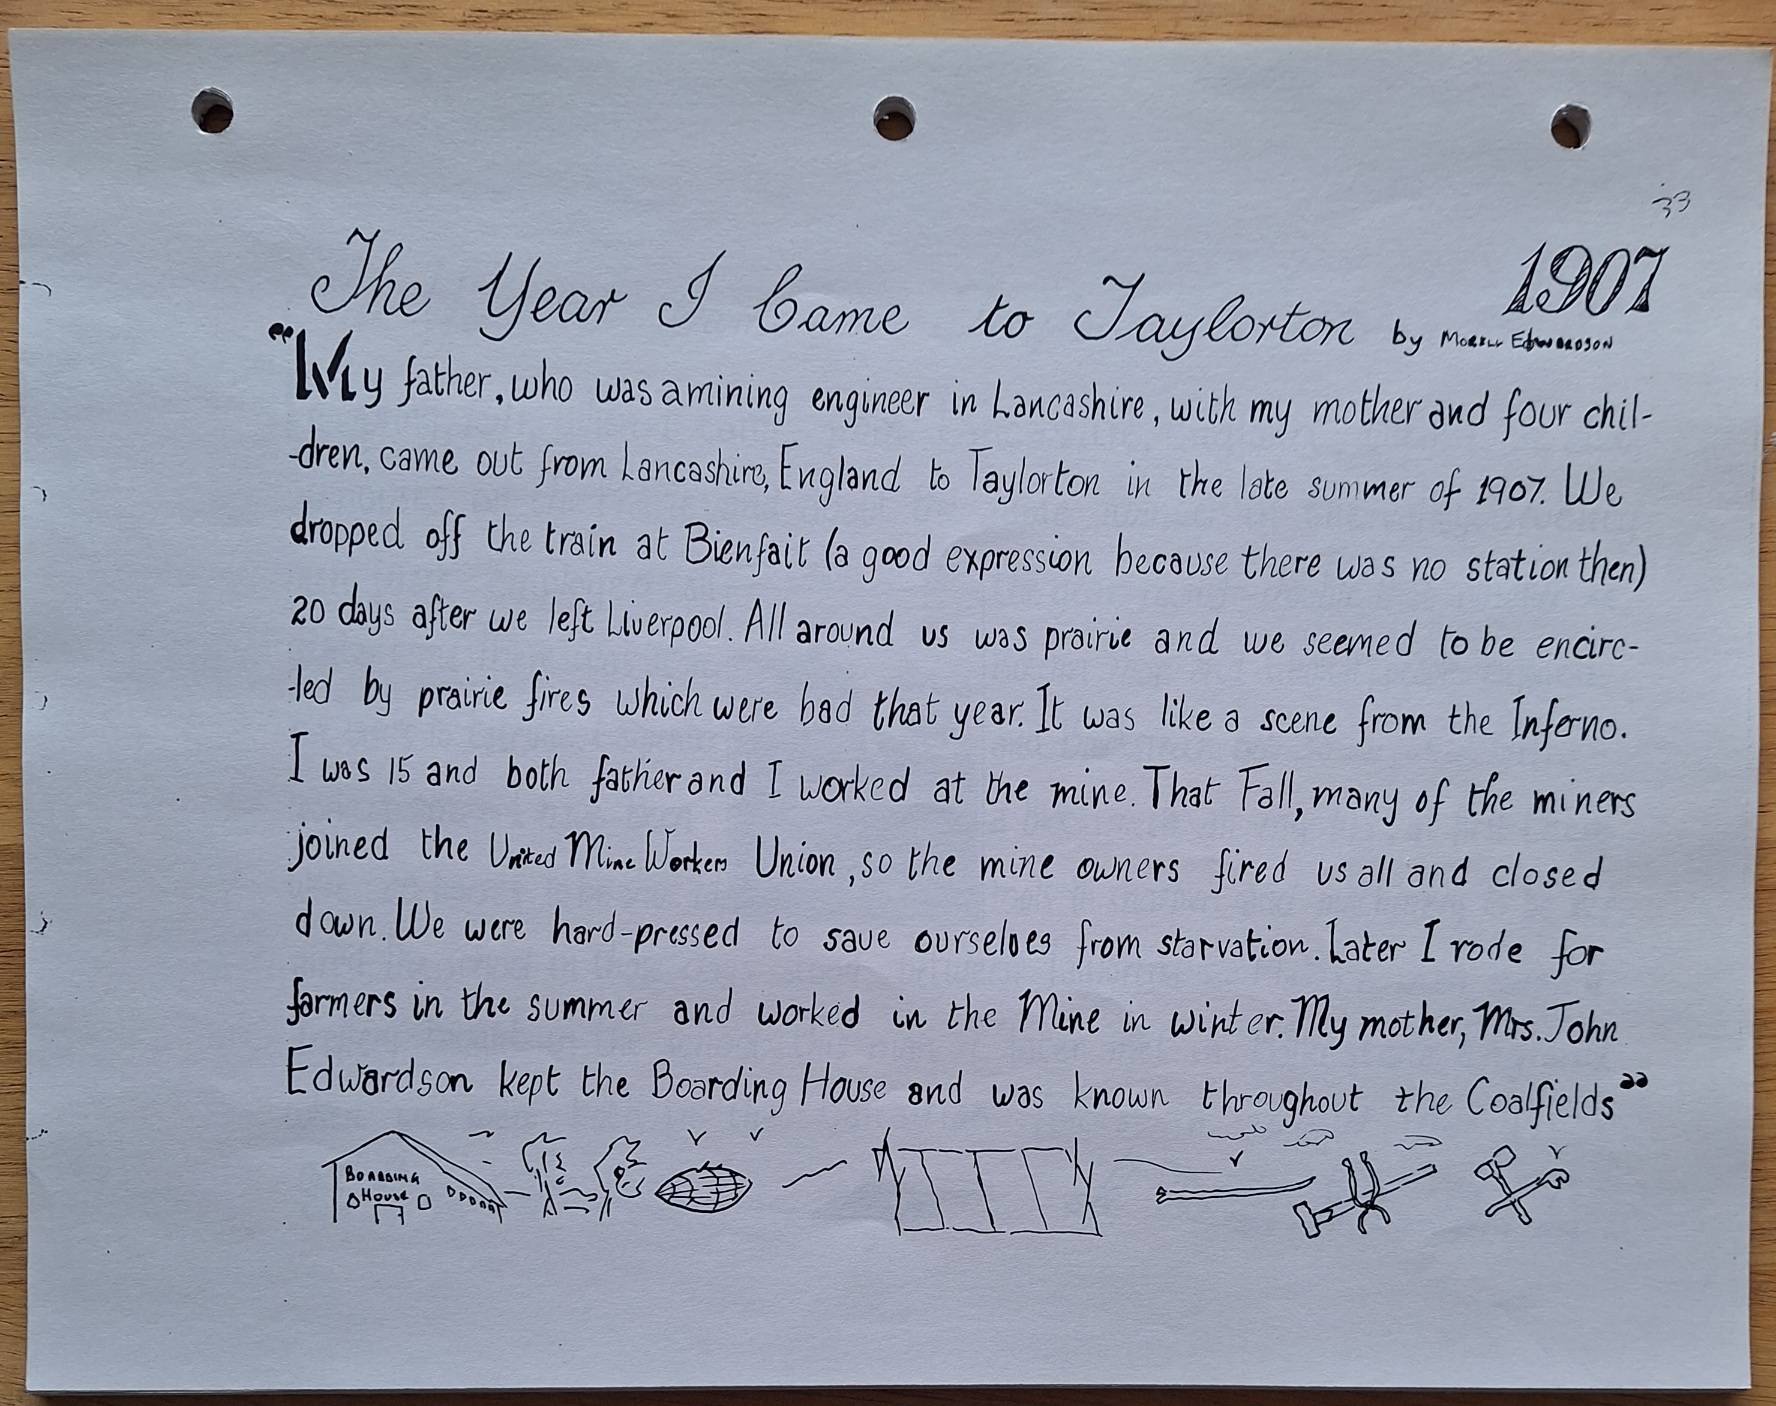 33
1907
The Year I Came to Taylorton by Edwardson
"My father, who was a mining engineer in Lancashire, with my mother and four chil-
-dren, came out from Lancashire, England to Taylorton in the late summer of 1907. We
dropped off the train at Bienfait (a good expression because there was no station then)
20 days after we left Liverpool. All around us was prairie and we seemed to be encirc-
-led by prairie fires which were bad that year. It was like a scene from the Inferno.
I was 15 and both father and I worked at the mine. That Fall, many of the miners
joined the United Mine Workers Union, so the mine owners fired us all and closed
down. We were hard-pressed to save ourselves from starvation. Later I rode for
farmers in the summer and worked in the Mine in winter. My mother, Mrs. John
Edwardson kept the Boarding House and was known throughout the Coalfields"
BOARDING
HOUSE